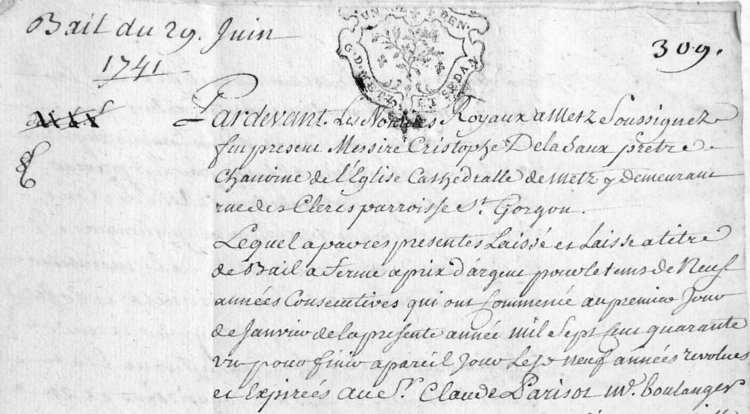 Bail du 29. Juin
1741
309.
UN DEN
G. D. METZ ET SEDAN
Pardevant Les Nottaires Royaux a Metz Soussignez
fut present Messire Cristophe Delasaux prêtre
Chanoine de l'Eglise Cathedralle de Metz y demeurant
rue des Clercs parroisse St. Gorgon.
Lequel a par ces presentes Laissé et Laisse a titre
de Bail a ferme a prix d'argent pour le tems de Neuf
années Consecutives qui ont Commencé au premier Jour
de Janvier de la presente année mil Sept Cent quarante
un pour finir a pareil Jour Lesd. neuf années revolues
et Expirées au Sr. Claude Parisot md. boulanger